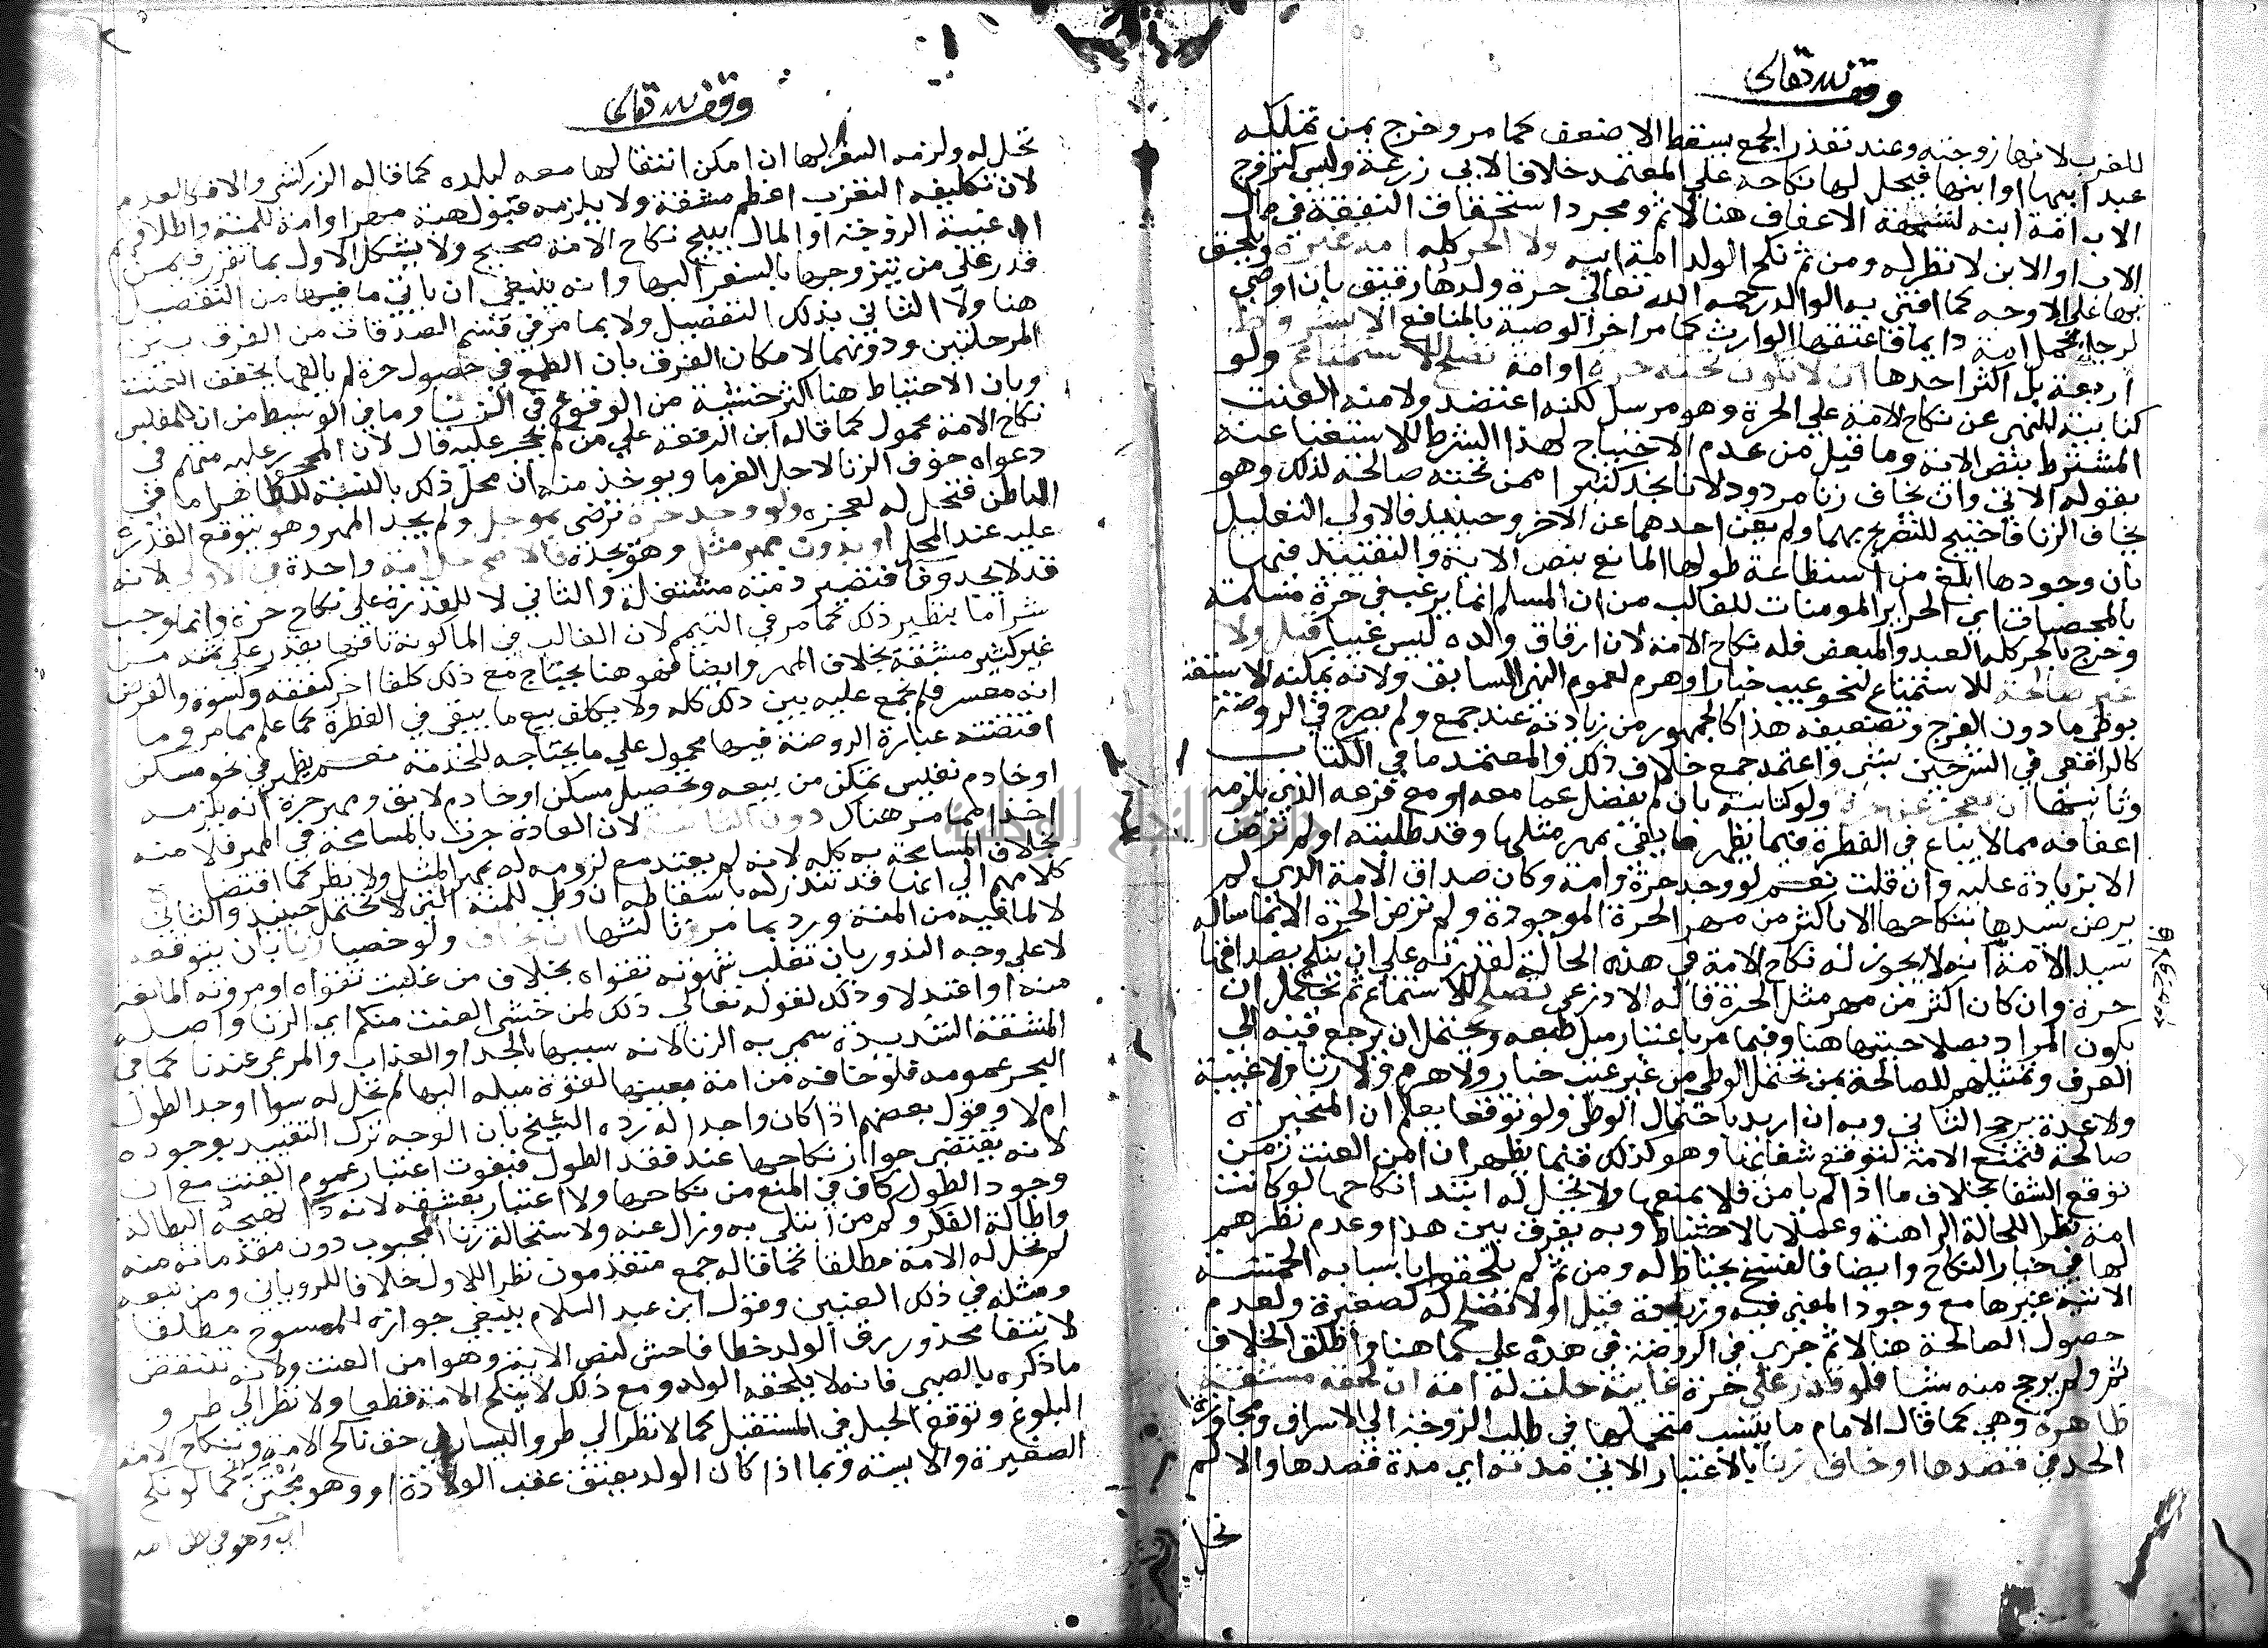 وقف لله تعالى
للغرب لانها زوجته وعند تعذر الجمع يسقط الاضعف كما مر وخرج بمن تملكه
عبد ابيها او ابنها فيحل لها نكاحه على المعتمد خلافا لابي زرعة وليس كتزوج
الاب امة ابنه لشبهة الاعفاف هنا لا ثم ومجرد استحقاق النفقة في مال
الاب او الابن لا نظر له ومن ثم نكح الولد امة ابيه ولا الحر كله امة غيره ويلحق
بها على الاوجه كما افتى به الوالد رحمه الله تعالى حرة ولدها رقيق بان اوصى
لرجل بحمل امة دايما فاعتقها الوارث كما مر اخر الوصية بالمنافع الا بشروط
اربعة بل اكثر احدها ان لا تكون تحته حرة او امة تصلح للاستمتاع ولو
كتابية للنهي عن نكاح الامة على الحرة وهو مرسل لكنه اعتضد ولامنه العنت
المشترط بنص الاية وما قيل من عدم الاحتياج لهذا الشرط للاستغنا عنه
بقوله الاتي وان يخاف زنا مردود لانا نجد كثيرا ممن تحته صالحة لذلك وهو
يخاف الزنا فاحتيج للتصريح بهما ولم يغن احدهما عن الاخر وحينيذ فالاولى التعليل
بان وجودها ابلغ من استطاعة طولها المانع بنص الاية والتقييد فيها
بالمحصنات اي الحراير المومنات للغالب من ان المسلم انما يرغب في حرة مسلمة
وخرج بالحر كله العبد والمبعض فله نكاح الامة لان ارقاق والده ليس عيبا قيل ولا
غير صالحة للاستمتاع لنحو عيب خيار او هرم لعموم النهي السابق ولانه يمكنه الاستمتاع
بوطي ما دون الفرج وتضعيفه هذا كالجمهور من زيادته عند جمع ولم يصرح في الروضة
كالرافعي في الشرحين بشي واعتمد جمع خلاف ذلك والمعتمد ما في الكتاب
وثانيها ان يعجز عن حرة ولو كتابية بان لم يفضل عما معه او مع فرعه الذي يلزمه
اعفافه مما لا يباع في الفطرة فيما يظهر ما يفي بمهر مثلها وقد طلبته او لم ترض
الا بزيادة عليه وان قلت نعم لو وجد حرة وامة وكان صداق الامة الذي لم
يرض سيدها بنكاحها الا باكثر من مهر الحرة الموجودة ولم ترض الحرة الا بما ساله
سيد الامة انه لا يجوز له نكاح الامة في هذه الحالة لقدرته على ان ينكح بصداقها
حرة وان كان اكثر من مهر مثل الحرة قاله الاذرعي تصلح للاستمتاع ثم تحتمل ان
يكون المراد بصلاحيتها هنا وفيما مر باعتبار ميل طبعه ويحتمل ان يرجع فيه الى
العرف وتمثيلهم للصالحة بمن تحتمل الوطي من غير عيب خيار ولا هرم ولا زنا ولا غيبة
ولا عدة يرجح الثاني وبه ان اريد باحتمال الوطي ولو توقعا يعلم ان المتحيرة
صالحة فتمنع الامة لتوقع شفايها وهو كذلك فيما يظهر ان امن العنت زمن
توقع الشفا بخلاف ما اذا لم يامن فلا يمنعها ولا تحل له ابتدا نكاحها لو كانت
امة نظرا للحالة الراهنة وعملا بالاحتياط وبه يفرق بين هذا وعدم نظرهم
لها في خيار النكاح وايضا فالفسخ يحتاط له ومن ثم لم يلحقوا باسبابه الخمسة
الاتية غيرها مع وجود المعنى فيه وزيادة قيل او لا تصلح له كصغيرة ولعدم
حصول الصالحة هنا لا ثم جرى في الروضة في هذه على ما هنا واطلق الخلاف
ثم ولم يرجح منه شيا فلو قدر على حرة غايبة حلت له امة ان لحقه مشقة
ظاهرة وهي كما قال الامام ما ينسب متحملها في طلب الزوجة الى الاسراف ومجاوزة
الحد في قصدها او خاف زنا بالاعتبار الاتي مدته اي مدة قصدها والا لم
تحل
وقف لله تعالى
تحل له ولزمه السفر لها ان امكن انتقالها معه لبلده كما قاله الزركشي والا فكالعدم
لان تكليفه التغرب اعظم مشقة ولا يلزمه قبول هبة مهر او امة للمنة واطلاقهم
ان غيبة الزوجة او المال يبيح نكاح الامة صحيح ولا يشكل الاول بما تقرر فيمن
قدر على من يتزوجها بالسفر اليها وانه ينبغي ان ياتي ما فيها من التفصيل
هنا ولا الثاني بذلك التفصيل ولا بما مر في قسم الصدقات من الفرق بين
المرحلتين ودونهما لامكان الفرق بان الطمع في حصول حرة لم يالفها يخفف العنت
وبان الاحتياط هنا اكثر خشية من الوقوع في الزنا وما في الوسيط من ان للمفلس
نكاح الامة محمول كما قاله ابن الرفعة على من لم يحجر عليه قال لان المحجور عليه متهم في
دعواه خوف الزنا لاجل الغرما ويوخذ منه ان محل ذلك بالنسبة للظاهر اما في
الباطن فتحل له لعجزه ولو وجد حرة ترضى بموجل ولم يجد المهر وهو يتوقع القدرة
عليه عند المحل او بدون مهر مثل وهو يجده فالاصح حل امة واحدة في الاولى لانه
قد لا يجد وفا فتصير ذمته مشتغلة والثاني لا للقدرة على نكاح حرة وانما وجب
شرا ما بنظير ذلك كما مر في التيمم لان الغالب في الما كونه تافها يقدر على ثمنه من
غير كثير مشقة بخلاف المهر وايضا فهو هنا يحتاج مع ذلك كلفا اخر كنفقة وكسوة والفرض
انه معسر فلم يجمع عليه بين ذلك كله ولا يكلف بيع ما يبقى في الفطرة كما علم مما مر وما
اقتضته عبارة الروضة فيها محمول على ما يحتاجه للخدمة نعم يظهر في نحو مسكن
او خادم نفيس تمكن من بيعه وتحصيل مسكن او خادم لايق ومهر حرة انه يلزمه
اخذا مما مر هناك دون الثانية لان العادة جرت بالمسامحة في المهر فلا منة
بخلاف المسامحة به كله لانه لم يعتد مع لزومه له بمهر المثل ولا نظر كما اقتضا
كلامهم الى انها قد تنذر له باسقاطه ان وطي للمنة التي لا تحتمل حينيذ والثاني
لا لما فيه من المنة ورد بما مر وثالثها ان يخاف ولو خصيا زنا بان يتوقعه
لا على وجه الندور بان تغلب شهوته تقواه بخلاف من غلبت تقواه او مروته المانعة
منه او اعتدلا وذلك لقوله تعالى ذلك لمن خشي العنت منكم اي الزنا واصله
المشقة الشديدة سمي به الزنا لانه سببها بالحد او العذاب والمرعي عندنا كما في
البحر عمومه فلو خافه من امة بعينها لقوة ميله اليها لم تحل له سوا اوجد الطول
ام لا وقول بعضهم اذا كان واجدا له رده الشيخ بان الوجه ترك التقييد بوجوده
لانه يقتضي جواز نكاحها عند فقد الطول فيفوت اعتبار عموم العنت مع ان
وجود الطول كاف في المنع من نكاحها ولا اعتبار بعشقه لانه دا تهيجه البطالة
واطالة الفكر وكم من ابتلي به وزال عنه ولاستحالة زنا المجبوب دون مقدماته منه
لم تحل له الامة مطلقا كما قاله جمع متقدمون نظرا للاول خلافا للروياني ومن تبعه
ومثله في ذلك العنين وقول ابن عبد السلام ينبغي جوازه للممسوح مطلقا
لانتفا محذور رق الولد خطا فاحش لنص الاية وهو امن العنت ولانه ينتقض
ما ذكره بالصبي فانه لا يلحقه الولد ومع ذلك لا ينكح الامة قطعا ولا نظر الى طرو
البلوغ وتوقع الحبل في المستقبل كما لا نظر الى طرو اليسار في حق ناكح الامة وبنكاح الامة
الصغيرة والايسة وبما اذا كان الولد يعتق عقب الولادة او وهو مجتن كما لو نكح
اي وهو في بطن امه